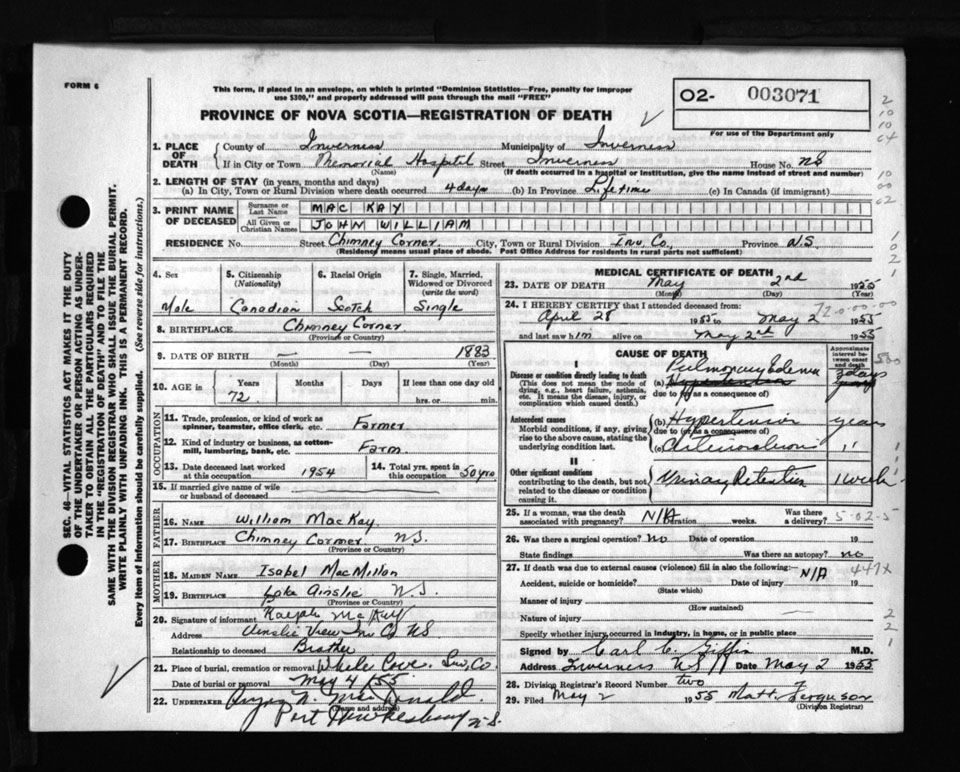 FORM 6
This form, if placed in an envelope, on which is printed "Dominion Statistics—Free, penalty for improper
use $300," and properly addressed will pass through the mail "FREE"
O2- 003071
For use of the Department only
PROVINCE OF NOVA SCOTIA—REGISTRATION OF DEATH
1. PLACE OF DEATH
County of Inverness Municipality of Inverness
If in City or Town Memorial Hospital Street Inverness House No. NS
(Name) (If death occurred in a hospital or institution, give the name instead of street and number)
2. LENGTH OF STAY (in years, months and days)
(a) In City, Town or Rural Division where death occurred 4 days (b) In Province Lifetime (c) In Canada (if immigrant)
3. PRINT NAME OF DECEASED
Surname or Last Name MAC KAY
All Given or Christian Names JOHN WILLIAM
RESIDENCE No. Street Chimney Corner City, Town or Rural Division Inv. Co. Province N.S
(Residence means usual place of abode. Post Office Address for residents in rural parts not sufficient)
4. Sex Male
5. Citizenship (Nationality) Canadian
6. Racial Origin Scotch
7. Single, Married, Widowed or Divorced (write the word) Single
8. BIRTHPLACE Chimney Corner
(Province or Country)
9. DATE OF BIRTH — — 1883
(Month) (Day) (Year)
10. AGE in Years Months Days If less than one day
72 hrs. or min.
OCCUPATION
11. Trade, profession, or kind of work as spinner, teamster, office clerk, etc. Farmer
12. Kind of industry or business, as cotton-mill, lumbering, bank, etc. Farm
13. Date deceased last worked at this occupation 1954
14. Total yrs. spent in this occupation 50 yrs
15. If married give name of wife or husband of deceased
FATHER
16. NAME William MacKay
17. BIRTHPLACE Chimney Corner N.S.
(Province or Country)
MOTHER
18. MAIDEN NAME Isabel MacMillan
19. BIRTHPLACE Lake Ainslie N.S
(Province or Country)
20. Signature of informant Ralph McKay
Address Ainslie View Inv Co NS
Relationship to deceased Brother
21. Place of burial, cremation or removal Whale Cove. Inv. Co.
Date of burial or removal May 4/55
22. UNDERTAKER MacDonald
(Name and address)
Port Hawkesbury N.S.
MEDICAL CERTIFICATE OF DEATH
23. DATE OF DEATH May 2nd 1955
(Month) (Day) (Year)
24. I HEREBY CERTIFY that I attended deceased from
April 28 1955 to May 2 1955
and last saw him on May 2nd 1955
72-0-00-00
CAUSE OF DEATH
Approximate interval between onset and death
I
Disease or condition directly leading to death
(This does not mean the mode of dying, e.g., heart failure, asthenia, etc. It means the disease, injury, or complication which caused death.)
(a) Pulmonary Edema 3 days
Hypertension years
due to (or as a consequence of)
Antecedent causes
Morbid conditions, if any, giving rise to the above cause, stating the underlying condition last.
(b) Hypertension years
due to (or as a consequence of)
(c) "
II
Other significant conditions
contributing to the death, but not related to the disease or condition causing it.
Urinary Retention 1 week
25. If a woman, was the death associated with pregnancy? N/A Duration weeks. Was there a delivery? 5-02-5
26. Was there a surgical operation? No Date of operation 19
State findings Was there an autopsy? no
27. If death was due to external causes (violence) fill in also the following:— N/A 447x
Accident, suicide or homicide? Date of injury 19
(State which)
Manner of injury
(How sustained)
Nature of injury
Specify whether injury occurred in industry, in home, or in public place
Signed by Carl C. Giffin M.D.
Address Inverness NS Date May 2 1955
28. Division Registrar's Record Number two
29. Filed May 2 1955 Matt. Ferguson
(Division Registrar)
SEC. 46—VITAL STATISTICS ACT MAKES IT THE DUTY
OF THE UNDERTAKER OR PERSON ACTING AS UNDER-
TAKER TO OBTAIN ALL THE PARTICULARS REQUIRED
IN THE "REGISTRATION OF DEATH" AND TO FILE THE
SAME WITH THE DIVISION REGISTRAR WHO SHALL ISSUE THE BURIAL PERMIT.
WRITE PLAINLY WITH UNFADING INK. THIS IS A PERMANENT RECORD.
Every item of information should be carefully supplied. (See reverse side for instructions.)